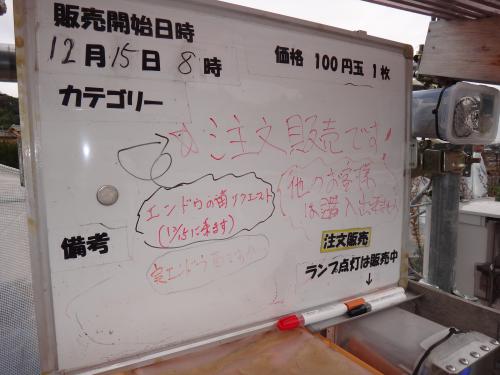 販売開始日時
12月15日 8時
価格 100円玉 1枚
カテゴリー
注文販売です!
エンドウの苗リクエスト
(12/15に来ます)
(他のお客様
は購入出来ません
備考
注文販売
ランプ点灯は販売中
↓